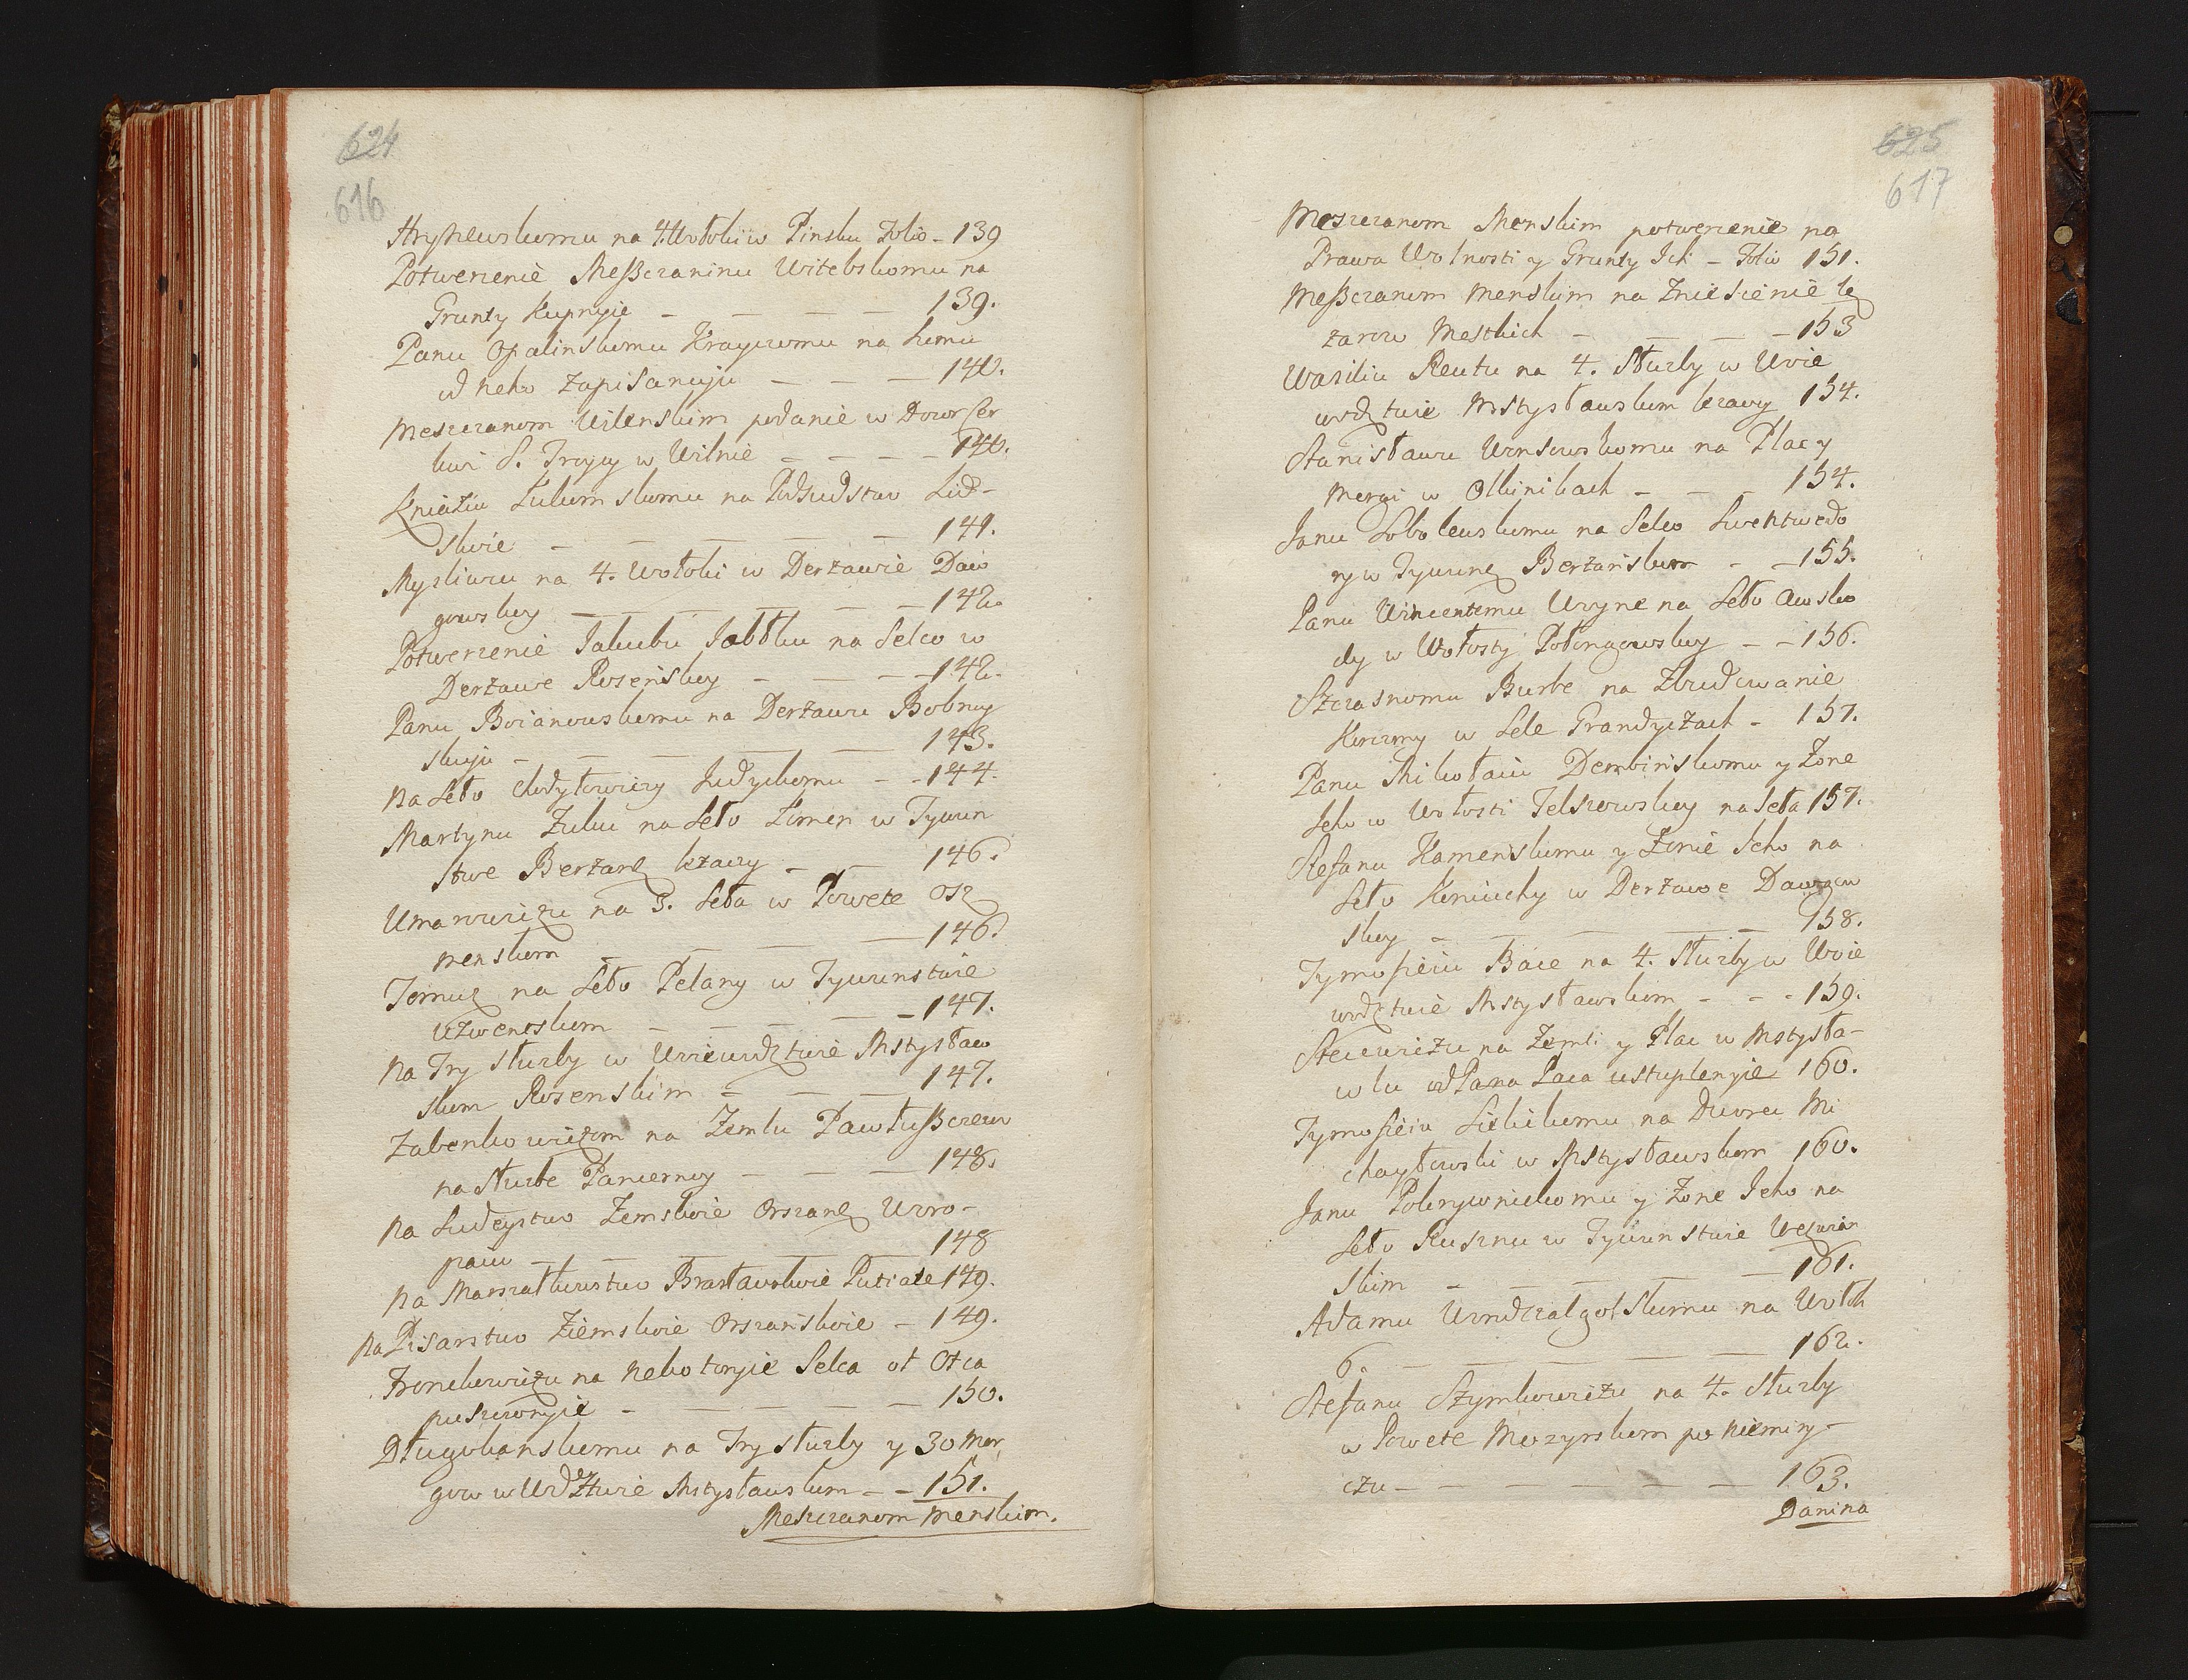 624
616
Hryszewskomu na 4. Wołoki w Pinsku Folio - 139
Potwerzenie Meßczaninu Witebskomu na
Grunty Kupnyie - - - - 139.
Panu Opalinskomu Krayczomu na Sumu
od neho Zapisanuju - - - 140.
Meszczanom Wilenskim podanie w Dozor Cer
kwi S. Troycy w Wilnie - - - - 140.
Kniaziu Łukomskomu na Podsudstwo Lid-
skoie - - - - - - 141.
Mysliwcu na 4. Wołoki w Derżawie Daw
gowskoy - - - - - 142.
Potwerzenie Jakubu Jabłku na Selco w
Derżawe Rosenskoy - - - - 142.
Panu Boianowskomu na Derżawu Bobruy
skuju - - - - - 143.
Na Seło Chodyłowiczy Judyckomu - - 144.
Martynu Zuku na Seło Limen w Tywun
stwe Berżanz keżaczy - - 146.
Umarowiczu na 3. Seła w Powete Osz
menskom - - - - 146.
Tomuz na Seło Pelany w Tywunstwie
Użwentskom - - - - - 147.
Na Try służby w Woiewodztwie Mstysław
skom Rosenskim - - - 147.
Zabenkowiczom na Zemlu Pawłußczew
na służbe Pancernoy - - - 148.
Na Sudeystwo Zemskoie Orszanz Woro-
paiu - - - - 148
Na Marszałkowstwo Brasławskoie Putiate 149.
Na Pisarstwo Ziemskoie Orszańskoie - 149.
Fronckowiczu na nekotoryie Selca ot Otca
puszczonyie - - - - - 150.
Długokanskomu na Try służby y 30 Mor
gow w Wodztwie Mstysławskom - - 151.
Meszczanom Menskim.
625
617
Meszczanom Menskim potwerzenie na
Prawa Wolnosti y Grunty Ich - Folio 151.
Meßczanom Menskim na Zniesienie Ię
zarow Mestkich - - - - 153
Wasiliu Reutu na 4. Służby w Woie
wodztwie Mstysławskom leżaczy 154.
Stanisławu Wonsowskomu na Plac y
Morgi w Olkinikach - - - 154.
Janu Sobolewskomu na Selco Swentwedo
ry w Tywunz Berżańskom - - 155.
Panu Wincentemu Woyne na Seło Awsko
dy w Wołosty Połongowskoy - - 156.
Szczasnomu Burbe na Zbudowanie
Korczmy w Sele Grandyczach - 157.
Panu Mikołaiu Dembińskomu y Żone
Ieho w Wołosti Telszowskoy na Seła 157.
Stefanu Kamenskomu y Żonie Ieho na
Seło Koniuchy w Derżawe Dawgow
skoy - - - - - - 158.
Tymofieiu Bace na 4. Służby w Woie
wodztwie Mstysławskom - - - 159.
Stecewiczu na Zemli y Plac w Mstysła-
wlu od Pana Paca ustuplenyie 160.
Tymofieiu Sielickomu na Dworec Mi
chayłowski w Mstysławskom 160.
Janu Pokrywnickomu y Żone Ieho na
Seło Rusznu w Tywunstwie Weszwian
skim - - - - - 161.
Adamu Wondzialgolskomu na Wołok
6. - - - - - 162.
Stefanu Szymkowiczu na 4. Służby
w Powete Mozyrskom po Niemiry-
czu - - - - - - 163.
Danina